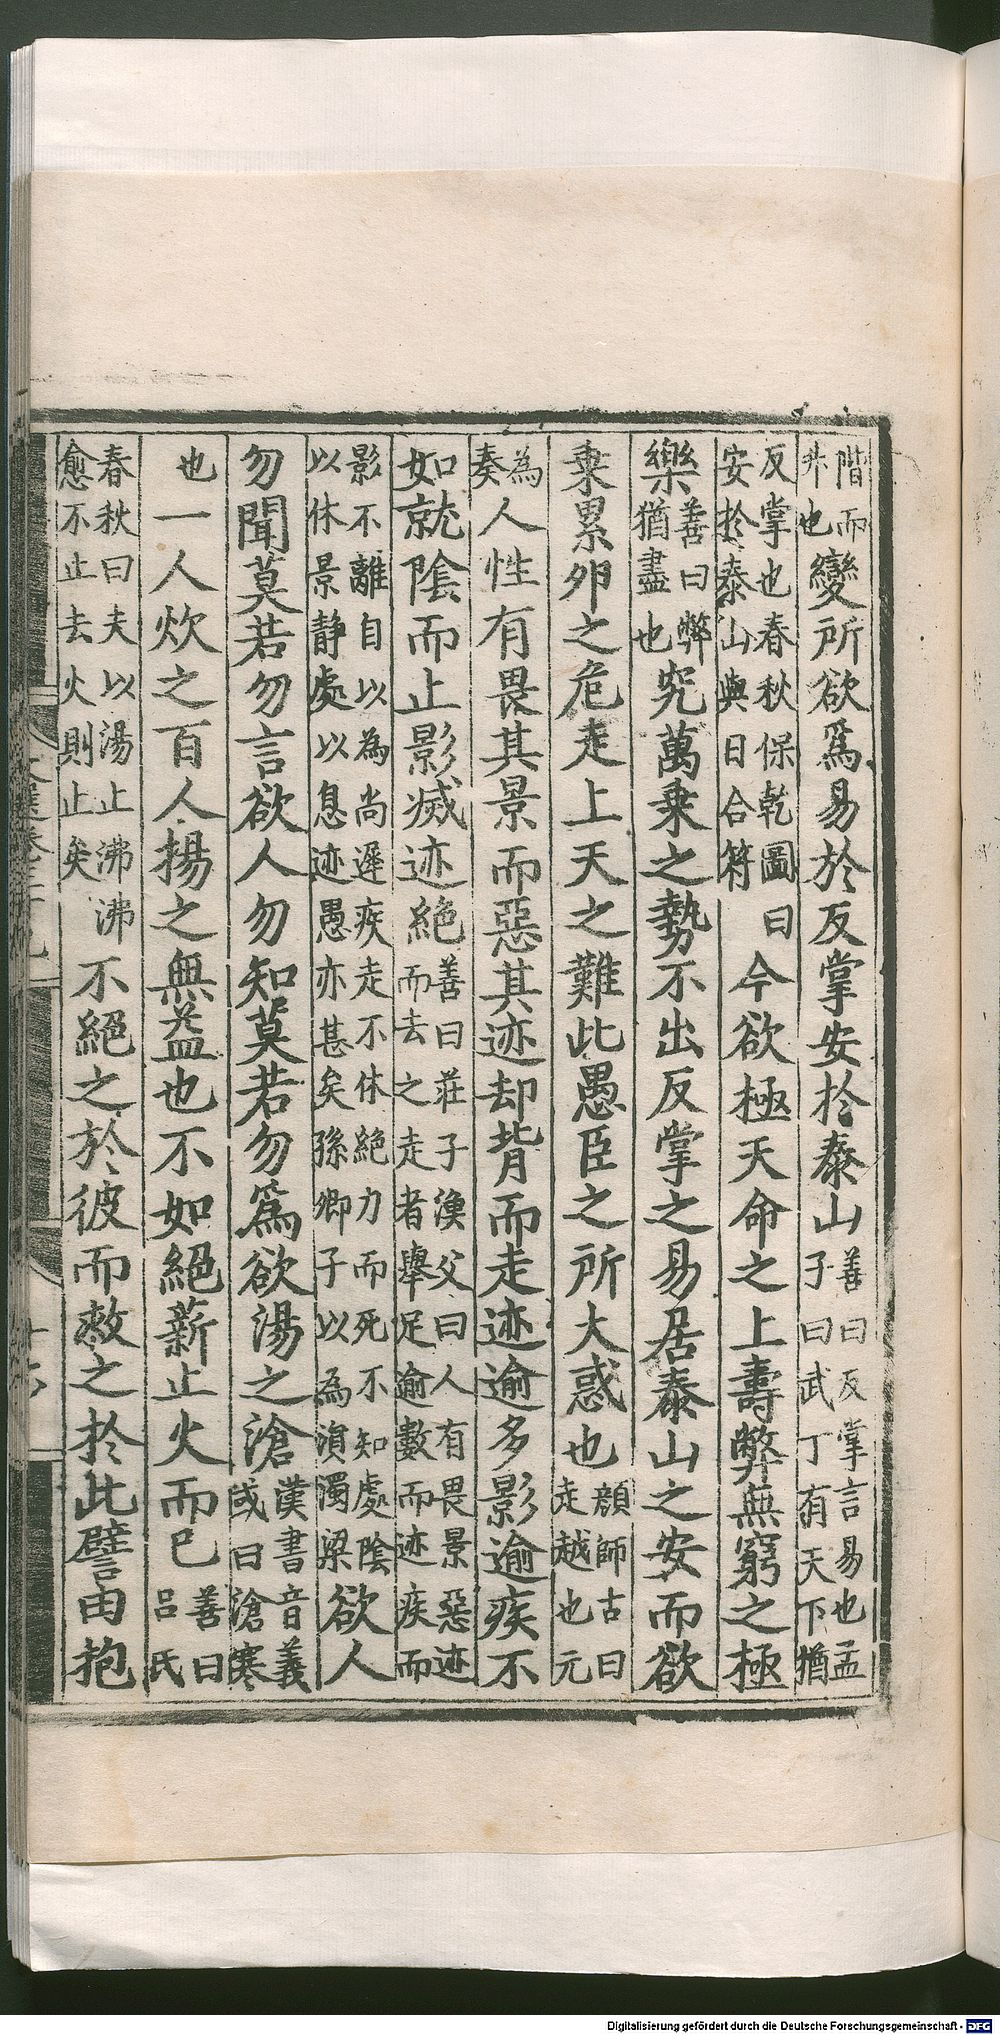 階而升也變所欲爲易於反掌安於泰山善曰反掌言易也孟子曰武丁有天下猶
反掌也春秋保乾圖曰安於泰山與日合符今欲極天命之上壽弊無窮之極
樂善曰弊猶盡也究萬乘之勢不出反掌之易居泰山之安而欲
乘累卵之危走上天之難此愚臣之所大惑也顔師古曰走越也元
為奏人性有畏其景而惡其迹却背而走迹逾多影逾疾不
如就陰而止影滅迹絶善曰莊子漁父曰人有畏景惡迹而去之走者舉足逾數而迹疾而
影不離自以為尚遲疾走不休絶力而死不知處陰以休景静處以息迹愚亦甚矣孫卿子以為涓濁梁欲人
勿聞莫若勿言欲人勿知莫若勿爲欲湯之滄漢書音義或曰滄寒
也一人炊之百人揚之無益也不如絕薪止火而已善曰呂氏
春秋曰夫以湯止沸沸愈不止去火則止矣不絕之於彼而救之於此譬由抱
Digitalisierung gefördert durch die Deutsche Forschungsgemeinschaft - DFG